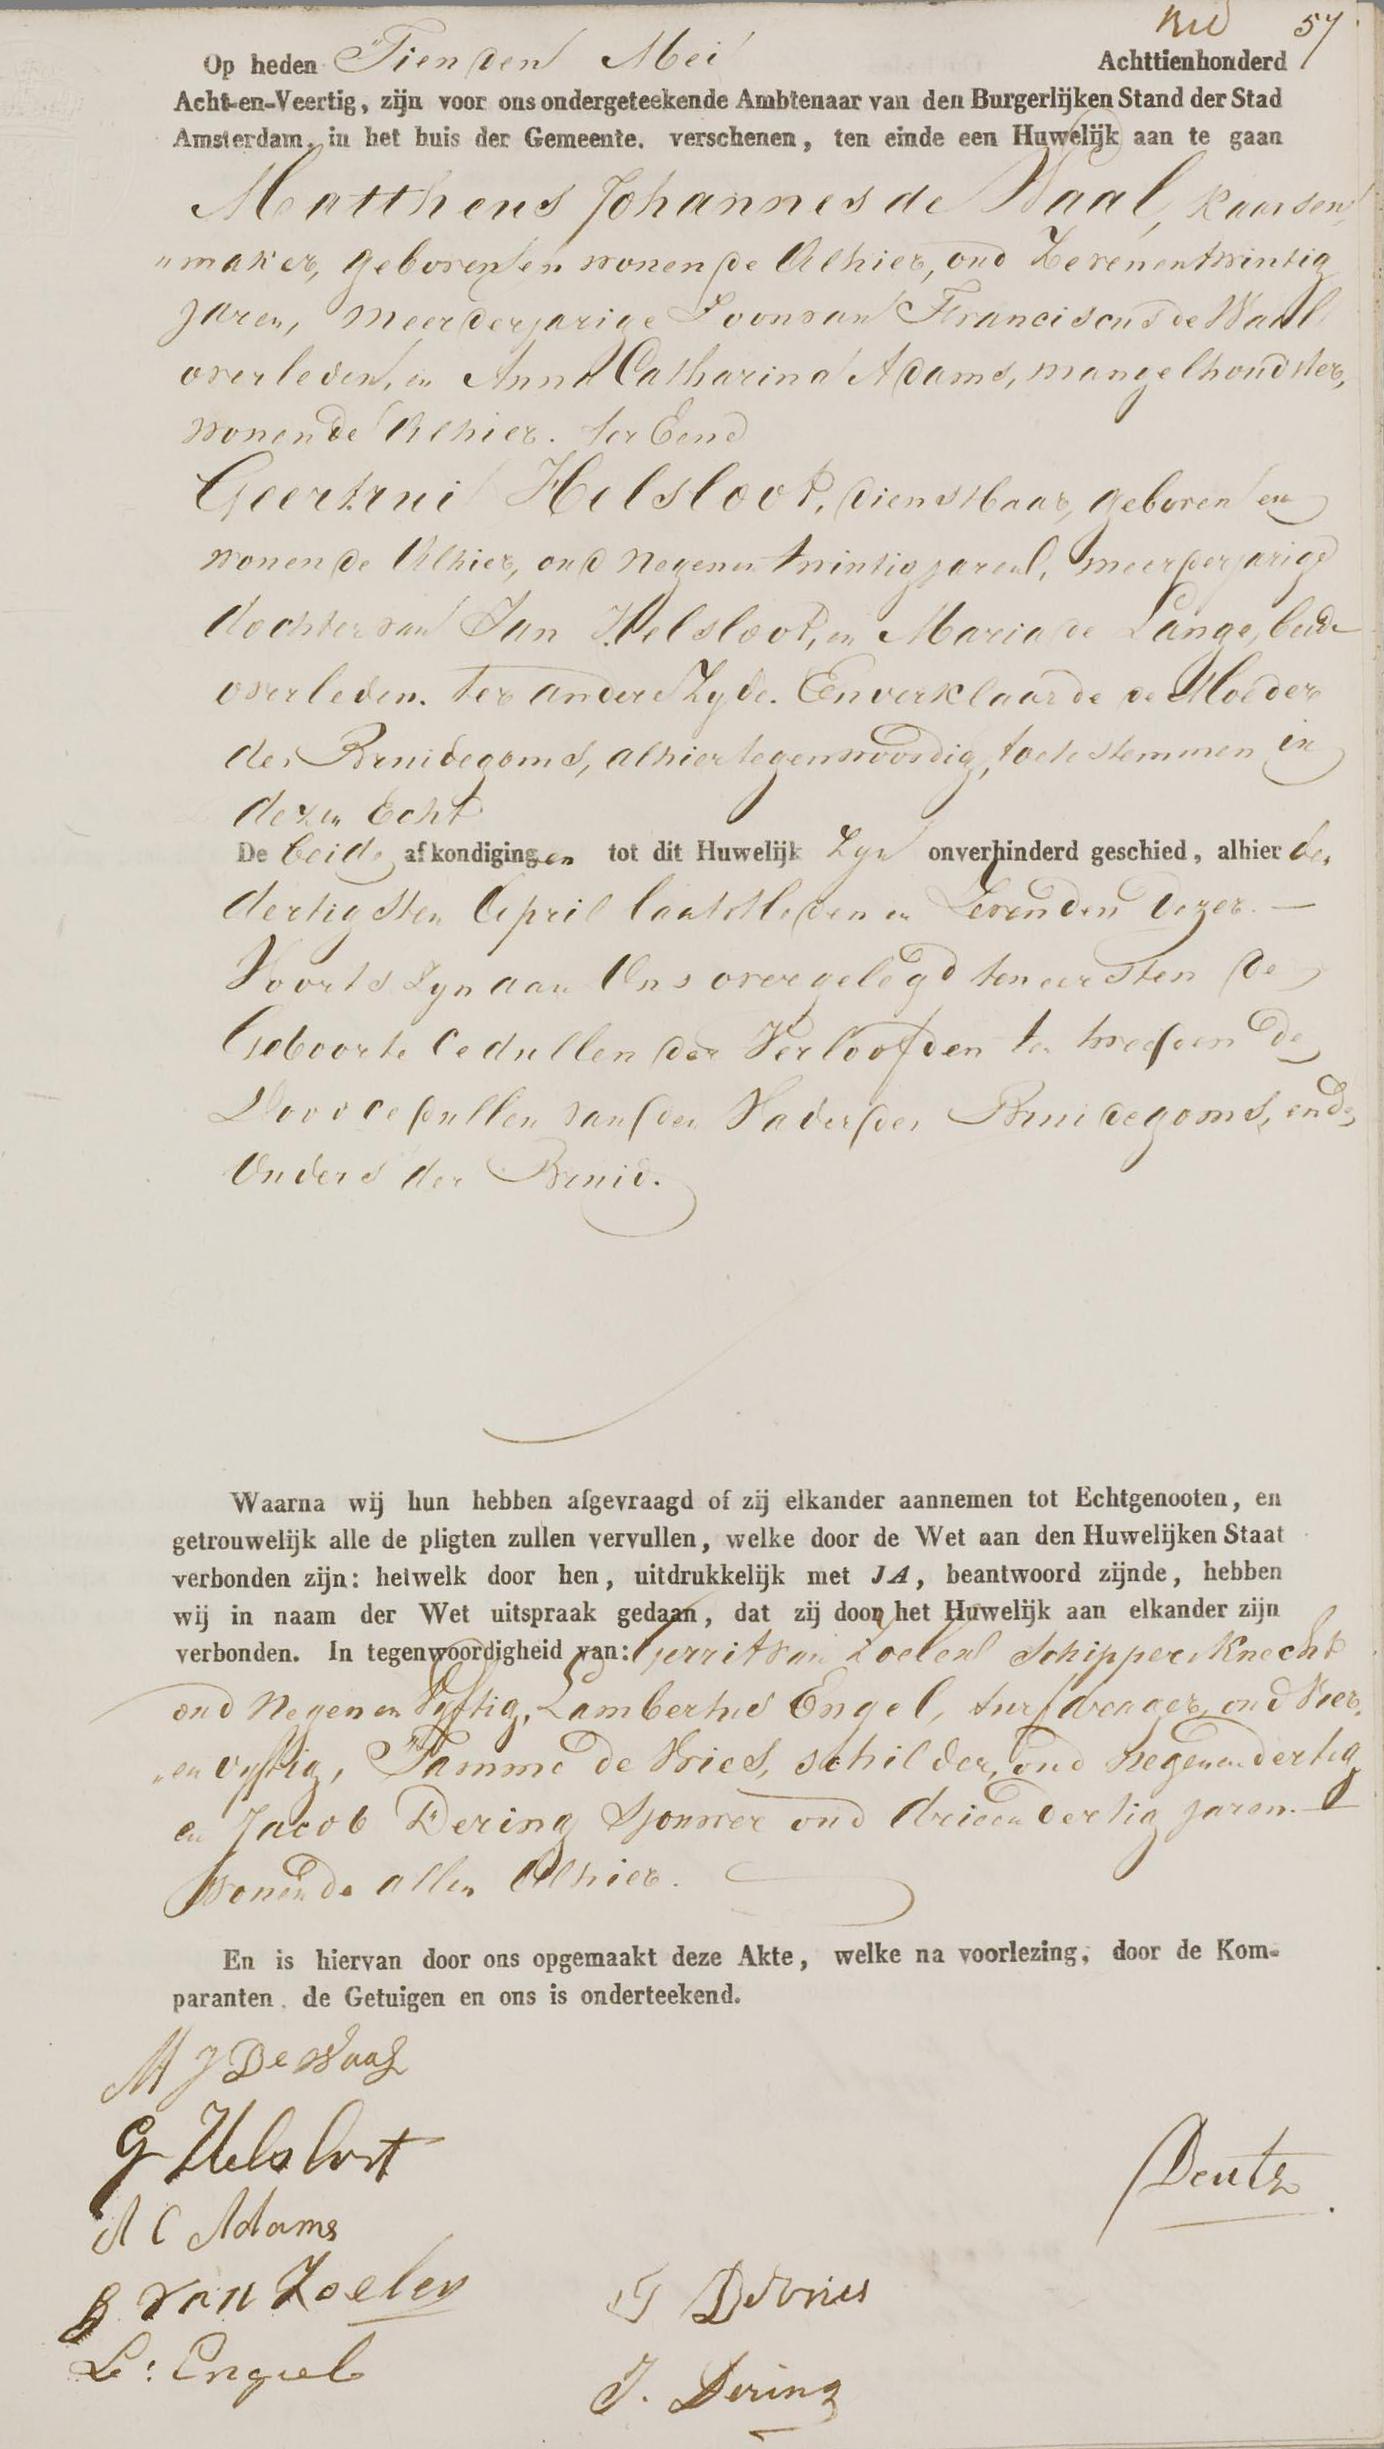 57
Op heden Tienden Mei Achttienhonderd
Acht-en-Veertig, zijn voor ons ondergeteekende Ambtenaar van den Burgerlijken Stand der Stad
Amsterdam, in het huis der Gemeente, verschenen, ten einde een Huwelijk aan te gaan
Mattheus Johannes de Waal, Kaarsen
"maker, geboren en wonende Alhier, oud Zevenentwintig
Jaren, meerderjarige Zoon van Franciscus de Waal
overleden, en Anna Catharina Adams, mangelhoudster,
wonende Alhier. ter Eene
Geertrui Helsloot, dienstbaar, geboren en
wonende Alhier, oud negenentwintig jaren, meerderjarige
dochter van Jan Helsloot, en Maria de Lange, beide
overleden. ter andere Zyde. En verklaarde de Moeder
des Bruidegoms, alhier tegenwoordig, toetestemmen in
dezen Echt
De beide afkondigingen tot dit Huwelijk Zyn onverhinderd geschied, alhier den
dertigsten April laatstleden en Zevenden dezer. —
Voorts Zyn aan Ons overgelegd ten eersten de
Geboorte Cedullen der Verloofden ten tweeden de
Doodcedullen van den Vader des Bruidegoms, en de
Ouders der Bruid.
Waarna wij hun hebben afgevraagd of zij elkander aannemen tot Echtgenooten, en
getrouwelijk alle de pligten zullen vervullen, welke door de Wet aan den Huwelijken Staat
verbonden zijn: hetwelk door hen, uitdrukkelijk met JA, beantwoord zijnde, hebben
wij in naam der Wet uitspraak gedaan, dat zij door het Huwelijk aan elkander zijn
verbonden. In tegenwoordigheid van: Gerrit van Zoelen Schippersknecht
oud Negenen Vyftig, Lambertus Engel, turfdrager, oud Vier
"en vyftig, Tamme de Vries, schilder, oud negenendertig
en Jacob Dering Sjouwer oud drieendertig jaren. —
wonende allen Alhier.
En is hiervan door ons opgemaakt deze Akte, welke na voorlezing, door de Kom-
paranten, de Getuigen en ons is onderteekend.
M J De Waal
G Helsloot
Deutz
A C Adams
G van Zoelen
T D Vries
L: Engel
J. Dering